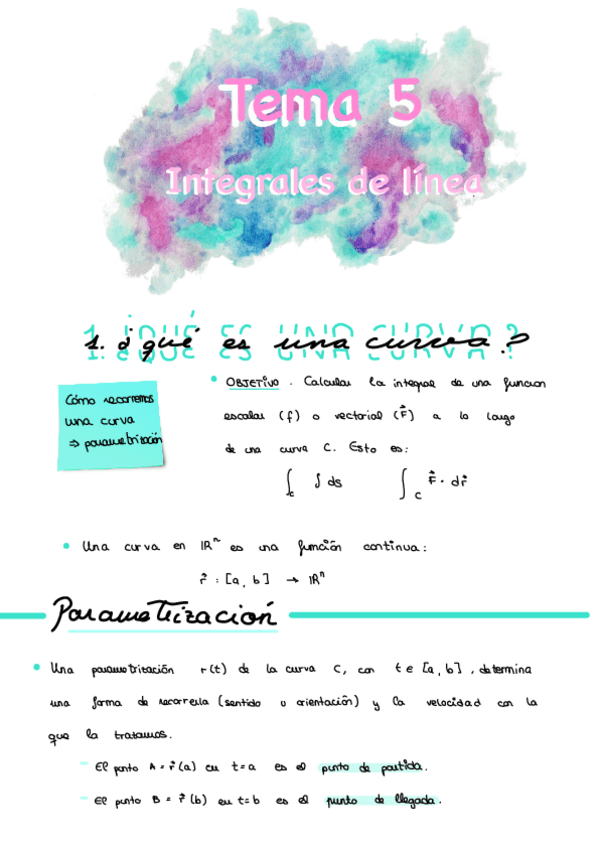 Tema 5
Integrales de línea
1. ¿qué es una curva?
Cómo recorremos
una curva
⇒ parametrización
• OBJETIVO. Calcular la integral de una función
escalar (f) o vectorial (F⃗) a lo largo
de una curva C. Esto es:
∫_C f ds ∫_C F⃗ · dr⃗
• Una curva en ℝⁿ es una función continua:
r⃗ : [a, b] → ℝⁿ
Parametrización
• Una parametrización r(t) de la curva C, con t ∈ [a, b], determina
una forma de recorrerla (sentido u orientación) y la velocidad con la
que la tratamos.
- El punto A = r⃗(a) en t=a es el punto de partida.
- El punto B = r⃗(b) en t=b es el punto de llegada.